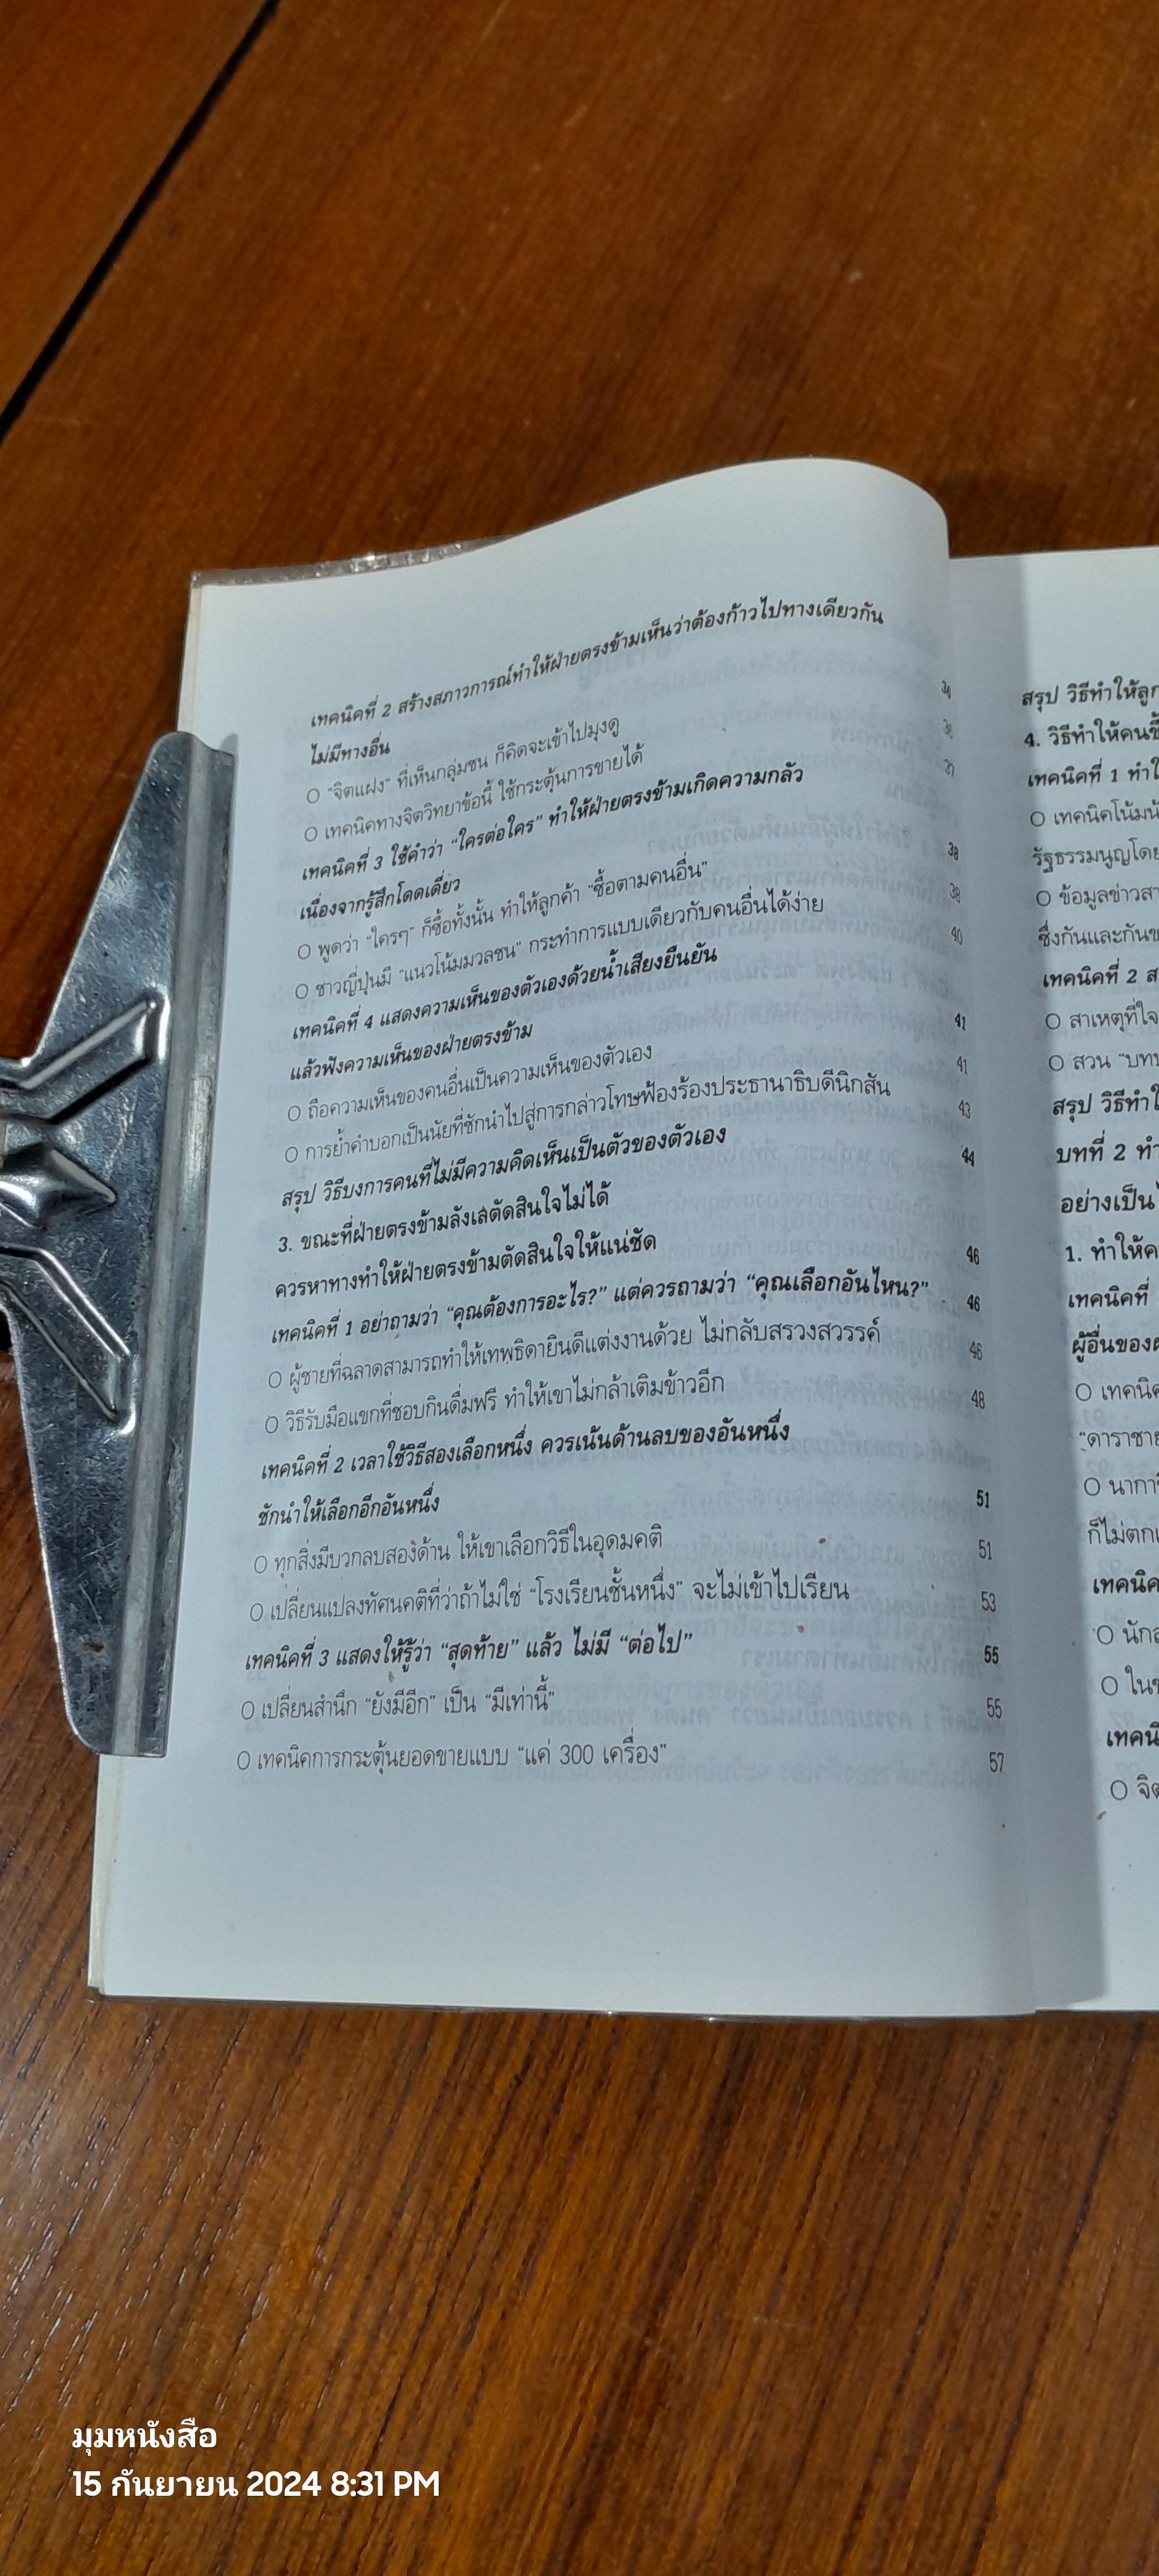 เทคนิคที่ 2 สร้างสภาวการณ์ทำให้ฝ่ายตรงข้ามเห็นว่าต้องก้าวไปทางเดียวกัน
ไม่มีทางอื่น
O “จิตแฝง” ที่เห็นกลุ่มชน ก็คิดจะเข้าไปมุงดู
O เทคนิคทางจิตวิทยาข้อนี้ ใช้กระตุ้นการขายได้ 37
เทคนิคที่ 3 ใช้คำว่า “ใครต่อใคร” ทำให้ฝ่ายตรงข้ามเกิดความกลัว
เนื่องจากรู้สึกโดดเดี่ยว 38
O พูดว่า “ใครๆ” ก็ซื้อทั้งนั้น ทำให้ลูกค้า “ซื้อตามคนอื่น” 38
O ชาวญี่ปุ่นมี “แนวโน้มมวลชน” กระทำการแบบเดียวกับคนอื่นได้ง่าย 40
เทคนิคที่ 4 แสดงความเห็นของตัวเองด้วยน้ำเสียงยืนยัน
แล้วฟังความเห็นของฝ่ายตรงข้าม 41
O ถือความเห็นของคนอื่นเป็นความเห็นของตัวเอง 41
O การย้ำคำบอกเป็นนัยที่ชักนำไปสู่การกล่าวโทษฟ้องร้องประธานาธิบดีนิกสัน 43
สรุป วิธีบงการคนที่ไม่มีความคิดเห็นเป็นตัวของตัวเอง 44
3. ขณะที่ฝ่ายตรงข้ามลังเลตัดสินใจไม่ได้
ควรหาทางทำให้ฝ่ายตรงข้ามตัดสินใจให้แน่ชัด 46
เทคนิคที่ 1 อย่าถามว่า “คุณต้องการอะไร?” แต่ควรถามว่า “คุณเลือกอันไหน?” 46
O ผู้ชายที่ฉลาดสามารถทำให้เทพธิดายินดีแต่งงานด้วย ไม่กลับสรวงสวรรค์ 46
O วิธีรับมือแขกที่ชอบกินดื่มฟรี ทำให้เขาไม่กล้าเติมข้าวอีก 48
เทคนิคที่ 2 เวลาใช้วิธีสองเลือกหนึ่ง ควรเน้นด้านลบของอันหนึ่ง
ชักนำให้เลือกอีกอันหนึ่ง 51
O ทุกสิ่งมีบวกลบสองด้าน ให้เขาเลือกวิธีในอุดมคติ 51
O เปลี่ยนแปลงทัศนคติที่ว่าถ้าไม่ใช่ “โรงเรียนชั้นหนึ่ง” จะไม่เข้าไปเรียน 53
เทคนิคที่ 3 แสดงให้รู้ว่า “สุดท้าย” แล้ว ไม่มี “ต่อไป” 55
O เปลี่ยนสำนึก “ยังมีอีก” เป็น “มีเท่านี้” 55
O เทคนิคการกระตุ้นยอดขายแบบ “แค่ 300 เครื่อง” 57
สรุป วิธีทำให้
4. วิธีทำให้คน
เทคนิคที่ 1 ทำ
O เทคนิคโน้ม
รัฐธรรมนูญโดย
O ข้อมูลข่าว
ซึ่งกันและกัน
เทคนิคที่ 2
O สาเหตุที่
O สวน
สรุป วิธีทำ
บทที่ 2
อย่างเป็น
1. ทำให้
เทคนิคที่
ผู้อื่นของ
O
“ดาราชาย
O
ก็ไม่
O
O
O
มุมหนังสือ
15 กันยายน 2024 8:31 PM